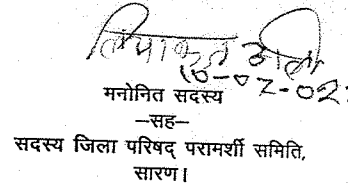 लियाकत अली
10-02-02
मनोनित सदस्य
–सह–
सदस्य जिला परिषद् परामर्शी समिति,
सारण।